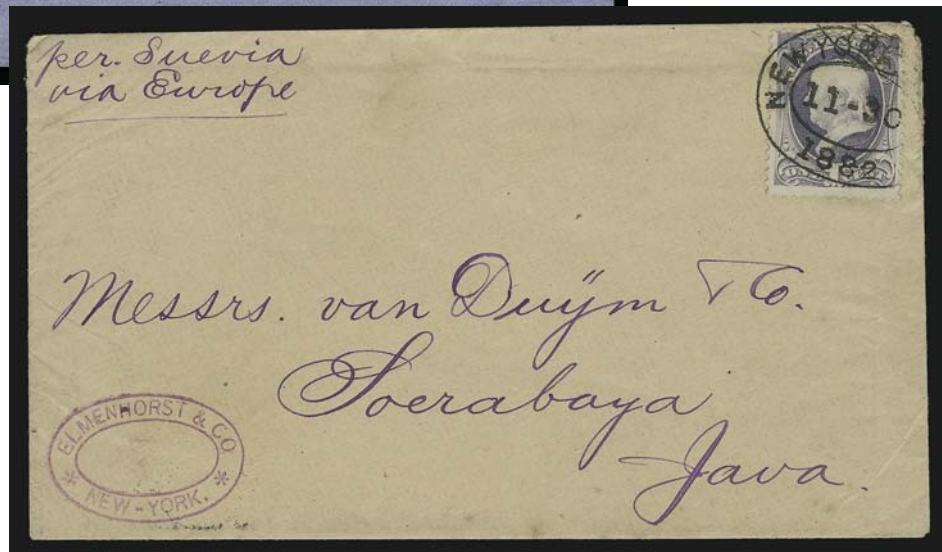 per. Suevia
via Europe
NEW YORK
11-30
1882
Messrs. van Duÿm & Co.
Soerabaya
Java.
ELMENHORST & CO
* NEW-YORK. *